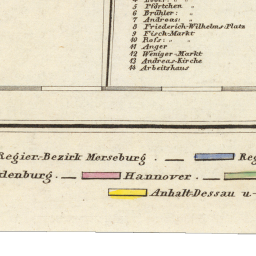 5 Pförtchen "
6 Brühler: "
7 Andreas: "
8 Friederich-Wilhelms-Platz
9 Fisch-Markt
10 Ross: " "
11 Anger
12 Weniger-Markt
13 Andreas-Kirche
14 Arbeitshaus
Regier.-Bezirk Merseburg. — Reg
denburg. — Hannover. —
Anhalt-Dessau u-